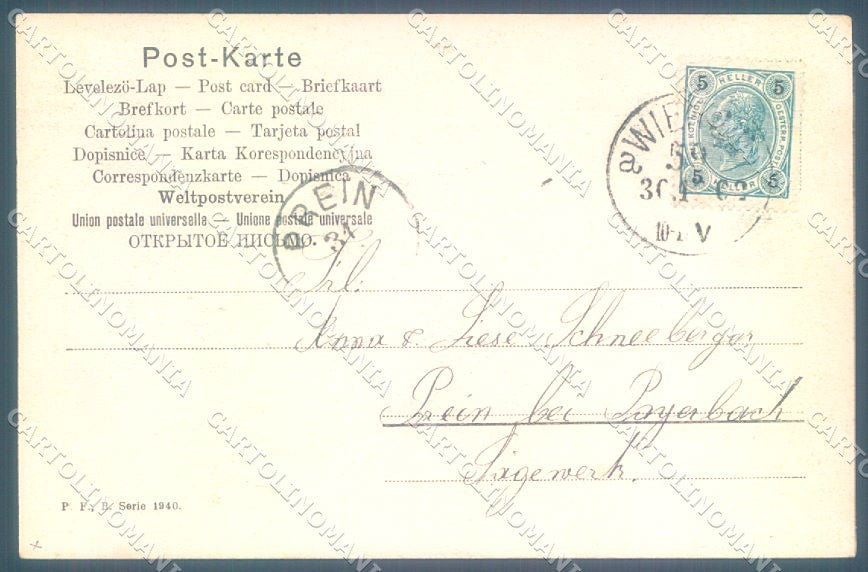 Post-Karte
Levelezö-Lap — Post card — Briefkaart
Brefkort — Carte postale
Cartolina postale — Tarjeta postal
Dopisnice — Karta Korespondencyjna
Correspondenzkarte — Dopisnica
Weltpostverein
Union postale universelle — Unione postale universale
ОТКРЫТОЕ ПИСЬМО.
PREIN
31
WIE
30.1
10-1 V
5 HELLER 5
5 HELLER 5
Frl:
Anna & Liese Schneeberger
Prein bei Payerbach
Sägewerk.
P. F. B. Serie 1940.
CARTOLINOMANIA